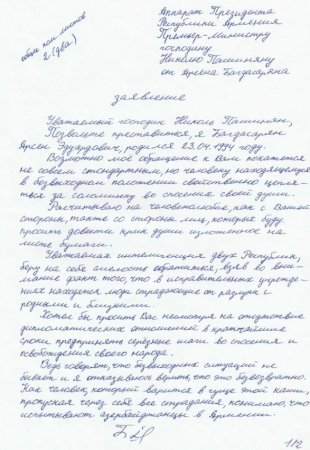 общее кол. листов
2 (два)
Аппарат Президента
Республики Армения
Премьер-министру
господину
Николу Пашиняну
от Арсена Багдасаряна
заявление
Уважаемый господин Николь Пашинян,
Позвольте представиться, я Багдасарян
Арсен Эдуардович, родился 23.04.1994 году.
Возможно мое обращение к Вам покажется
не совсем стандартным, но человеку находящемуся
в безвыходном положении свойственно цепля-
ться за соломинку во спасение своей души.
Рассчитываю на человеколюбие, как с Вашей
стороны, также со стороны лиц, которых буду
просить довести крик души изложенное на
листе бумаги.
Уважаемая интеллигенция двух Республик,
беру на себя смелость обратиться, взяв во вни-
мание факт того, что в исправительных учрежде-
ниях находятся люди страдающие от разлуки с
родными и близкими.
Хотел бы просить Вас несмотря на отсутствие
дипломатических отношений в кратчайшие
сроки предпринять серьезные шаги во спасения и
освобождения своего народа.
Ведь говорят, что безвыходных ситуаций не
бывает и я отказываюсь верить, что это безвозвратно.
Как человек, который варится в гуще этой каши,
пропуская через себя все страдания понимаю, что
испытывают азербайджанцы в Армении.
1/2